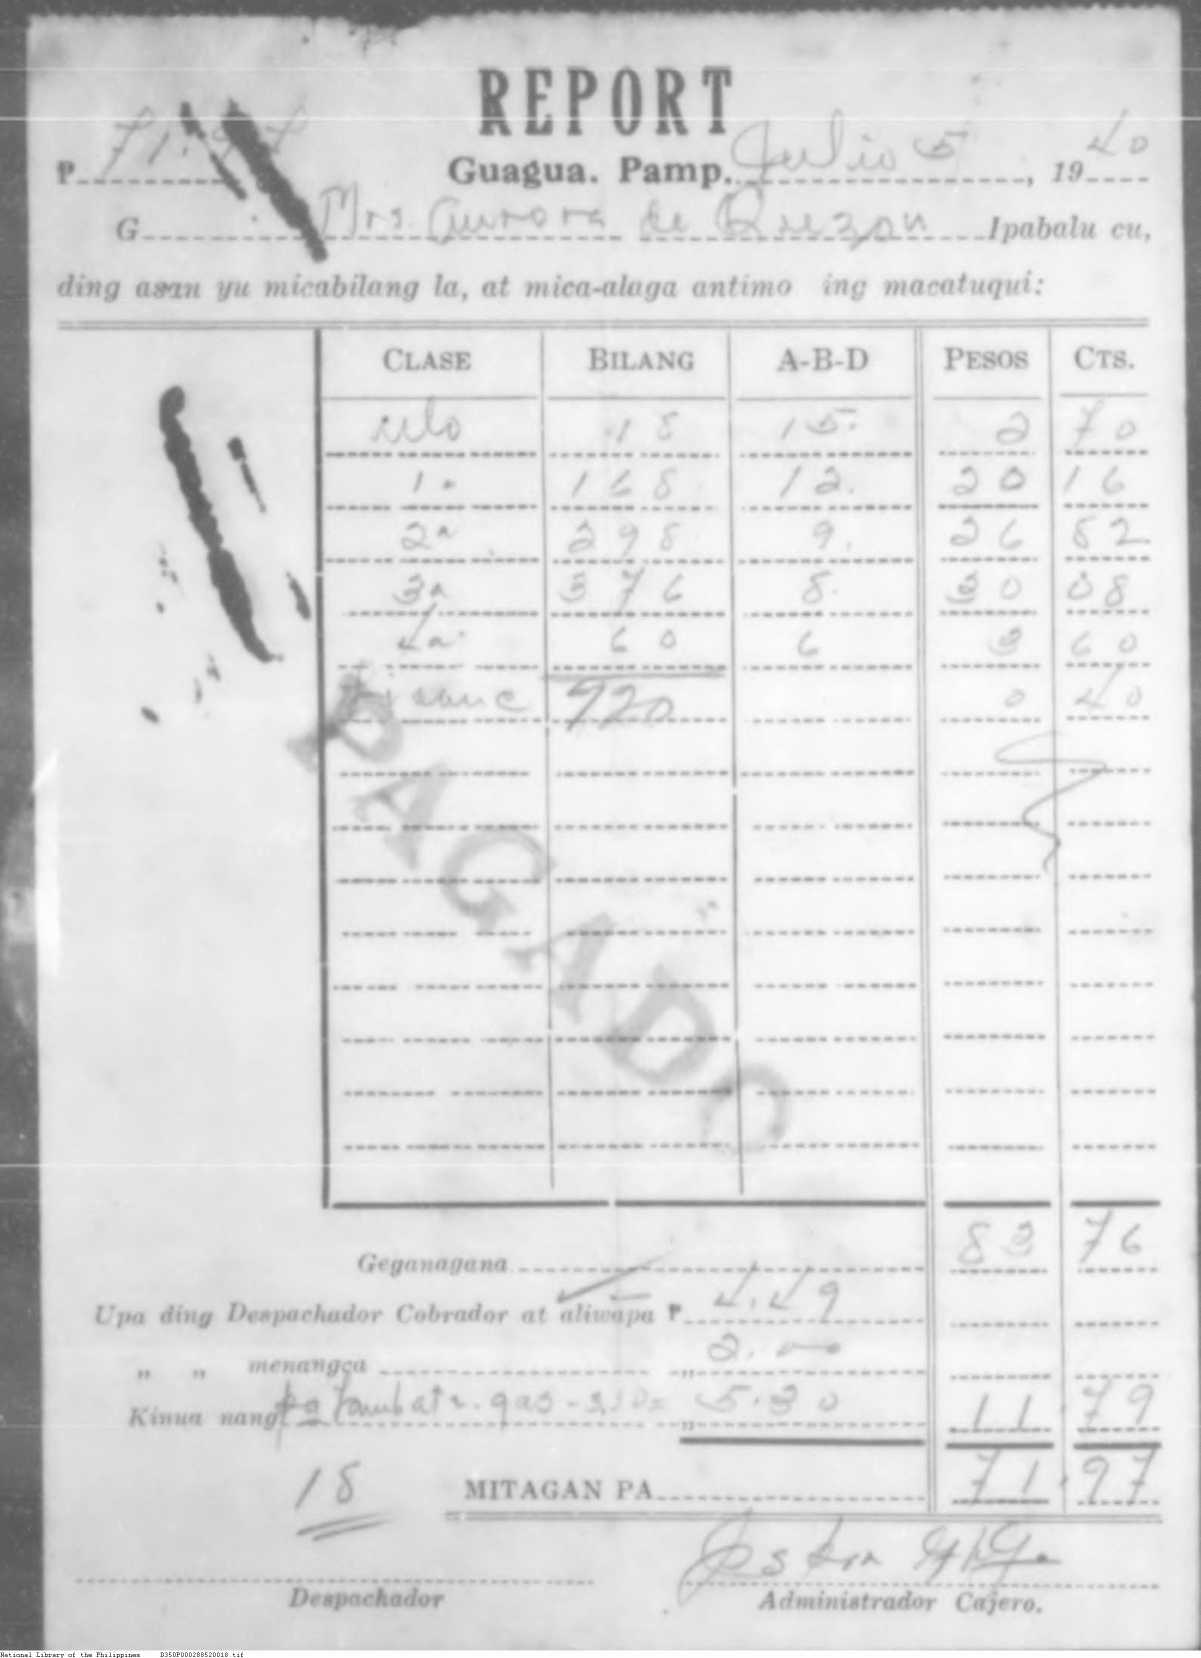 REPORT
₱ 71.97 Guagua. Pamp. Julio 5, 1940
G Mrs. Aurora de Quezon Ipabalu cu,
ding asan yu micabilang la, at mica-alaga antimo ing macatuqui:
CLASE BILANG A-B-D PESOS CTS.
18 15. 2 70
1a 168 12. 20 16
2a 298 9. 26 82
3a 376 8. 30 08
4a 60 6 3 60
920 0 40
PAGADO
Geganagana 83 76
Upa ding Despachador Cobrador at aliwapa ₱ 4.49
„ „ menangca „ 2.00
Kinua nang gas - = „ 5.30 11.79
18 MITAGAN PA 71.97
Despachador Administrador Cajero.
National Library of the Philippines D350P000288520018.tif